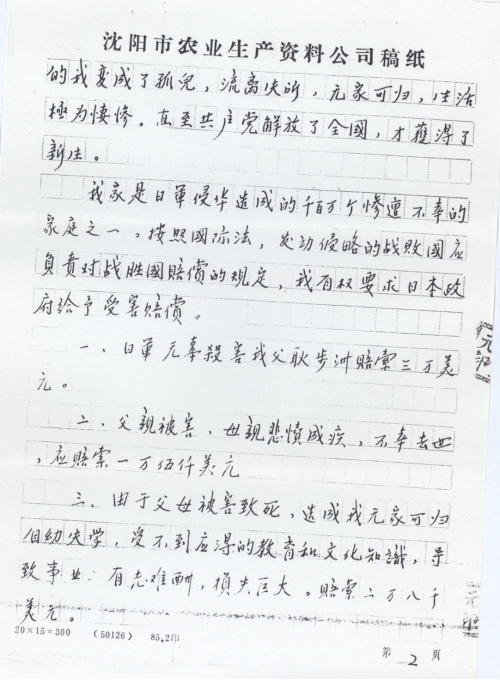 沈阳市农业生产资料公司稿纸
的我变成了孤儿，流离失所，无家可归，生活
極为悽惨。直至共产党解放了全國，才獲得了
新生。
我家是日軍侵华造成的千百万个惨遭不幸的
家庭之一。按照國际法，发动侵略的战敗國应
負責对战胜國賠償的规定，我有权要求日本政
府给予受害賠償。
一、日軍无辜殺害我父耿步洲賠索三万美
元。
二、父親被害、母親悲憤成疾，不幸去世
，应賠索一万伍仟美元
三、由于父母被害致死，造成我无家可归
自幼失学，受不到应得的教育和文化知識，导
致事业：有志难酬，損失巨大。賠索二万八千
美元。
20×15=300 (50126) 85.2印
第 2 頁